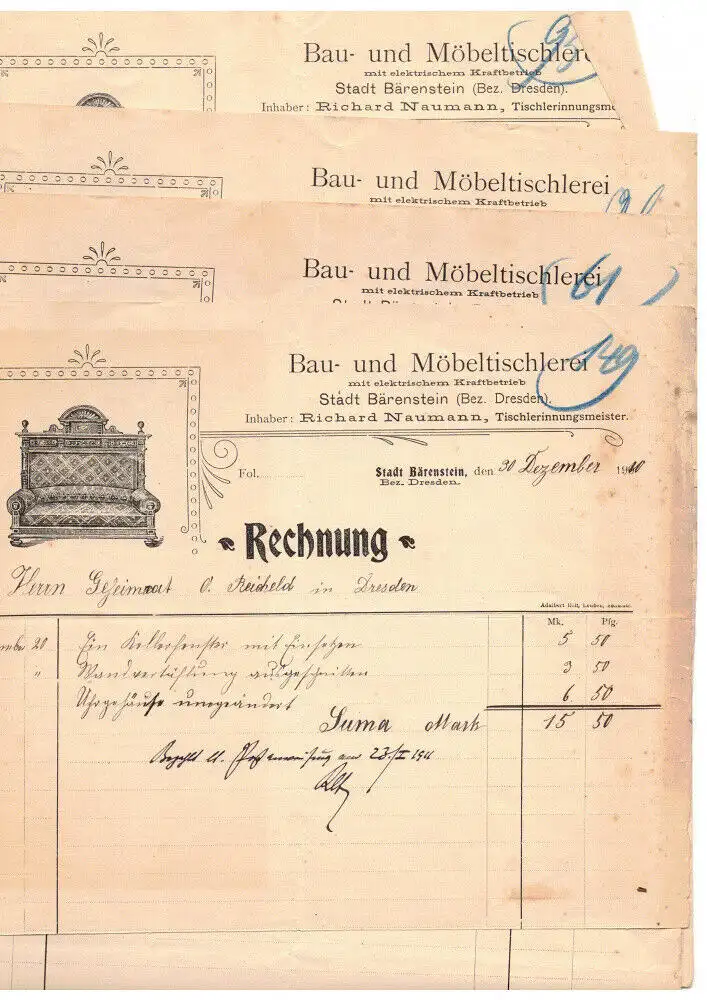 Bau- und Möbeltischlere
93
mit elektrischem Kraftbetrieb
Stadt Bärenstein (Bez. Dresden).
Inhaber: Richard Naumann, Tischlerinnungsme
Bau- und Möbeltischlerei
mit elektrischem Kraftbetrieb
Bau- und Möbeltischlerei
61
mit elektrischem Kraftbetrieb
Bau- und Möbeltischlerei
149
mit elektrischem Kraftbetrieb
Stadt Bärenstein (Bez. Dresden).
Inhaber: Richard Naumann, Tischlerinnungsmeister.
Fol.
Stadt Bärenstein, den 30 Dezember 1910
Bez. Dresden.
Rechnung
Herrn Geheimrat O. in Dresden
Mk. Pfg.
20 Ein Kellerfenster mit Einsetzen 5 50
" ausgeschnitten 3 50
Uhrgehäuse umgeändert 6 50
Suma Mark 15 50
Bezahlt d. Postanweisung am 23./I 1911